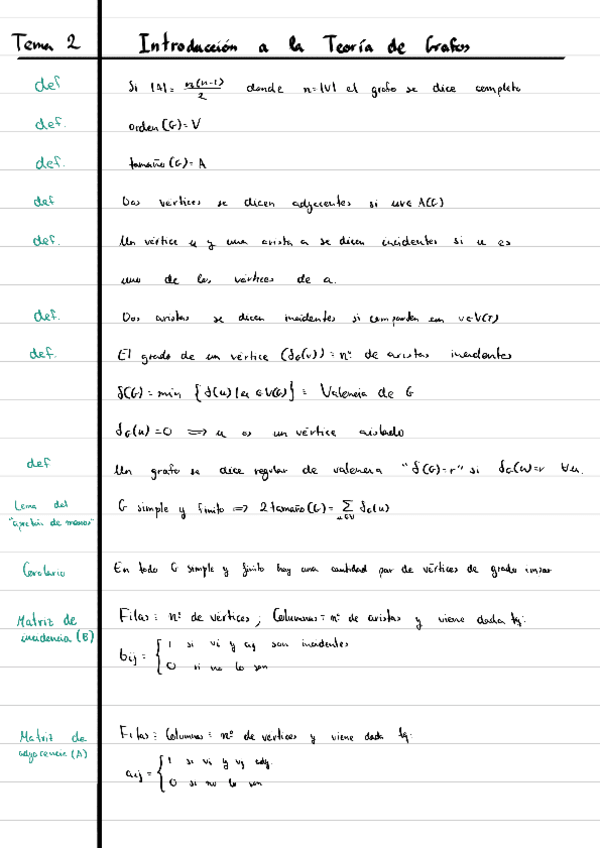 Tema 2 Introducción a la Teoría de Grafos
def Si |A| = n(n-1)/2 donde n=|V| el grafo se dice completo
def. orden(G)=V
def. tamaño(G)=A
def Dos vértices se dicen adyacentes si uv∈A(G)
def. Un vértice u y una arista a se dicen incidentes si u es
uno de los vértices de a.
def. Dos aristas se dicen incidentes si comparten un v∈V(G)
def. El grado de un vértice (δG(v)) = nº de aristas incidentes
δ(G) = min {δ(u) | u ∈ V(G)} ≡ Valencia de G
δG(u)=0 ⟹ u es un vértice aislado
def Un grafo se dice regular de valencia "δ(G)=r" si δG(u)=r ∀u.
Lema del G simple y finito ⟹ 2 tamaño(G) = Σ δG(u)
"apretón de manos" u∈V
Corolario En todo G simple y finito hay una cantidad par de vértices de grado impar
Matriz de Filas: nº de vértices; Columnas: nº de aristas y viene dada tq:
incidencia (B) bij = { 1 si vi y aj son incidentes
0 si no lo son
Matriz de Filas = Columnas = nº de vertices y viene dada tq:
adyacencia (A) aij = { 1 si vi y vj adj.
0 si no lo son